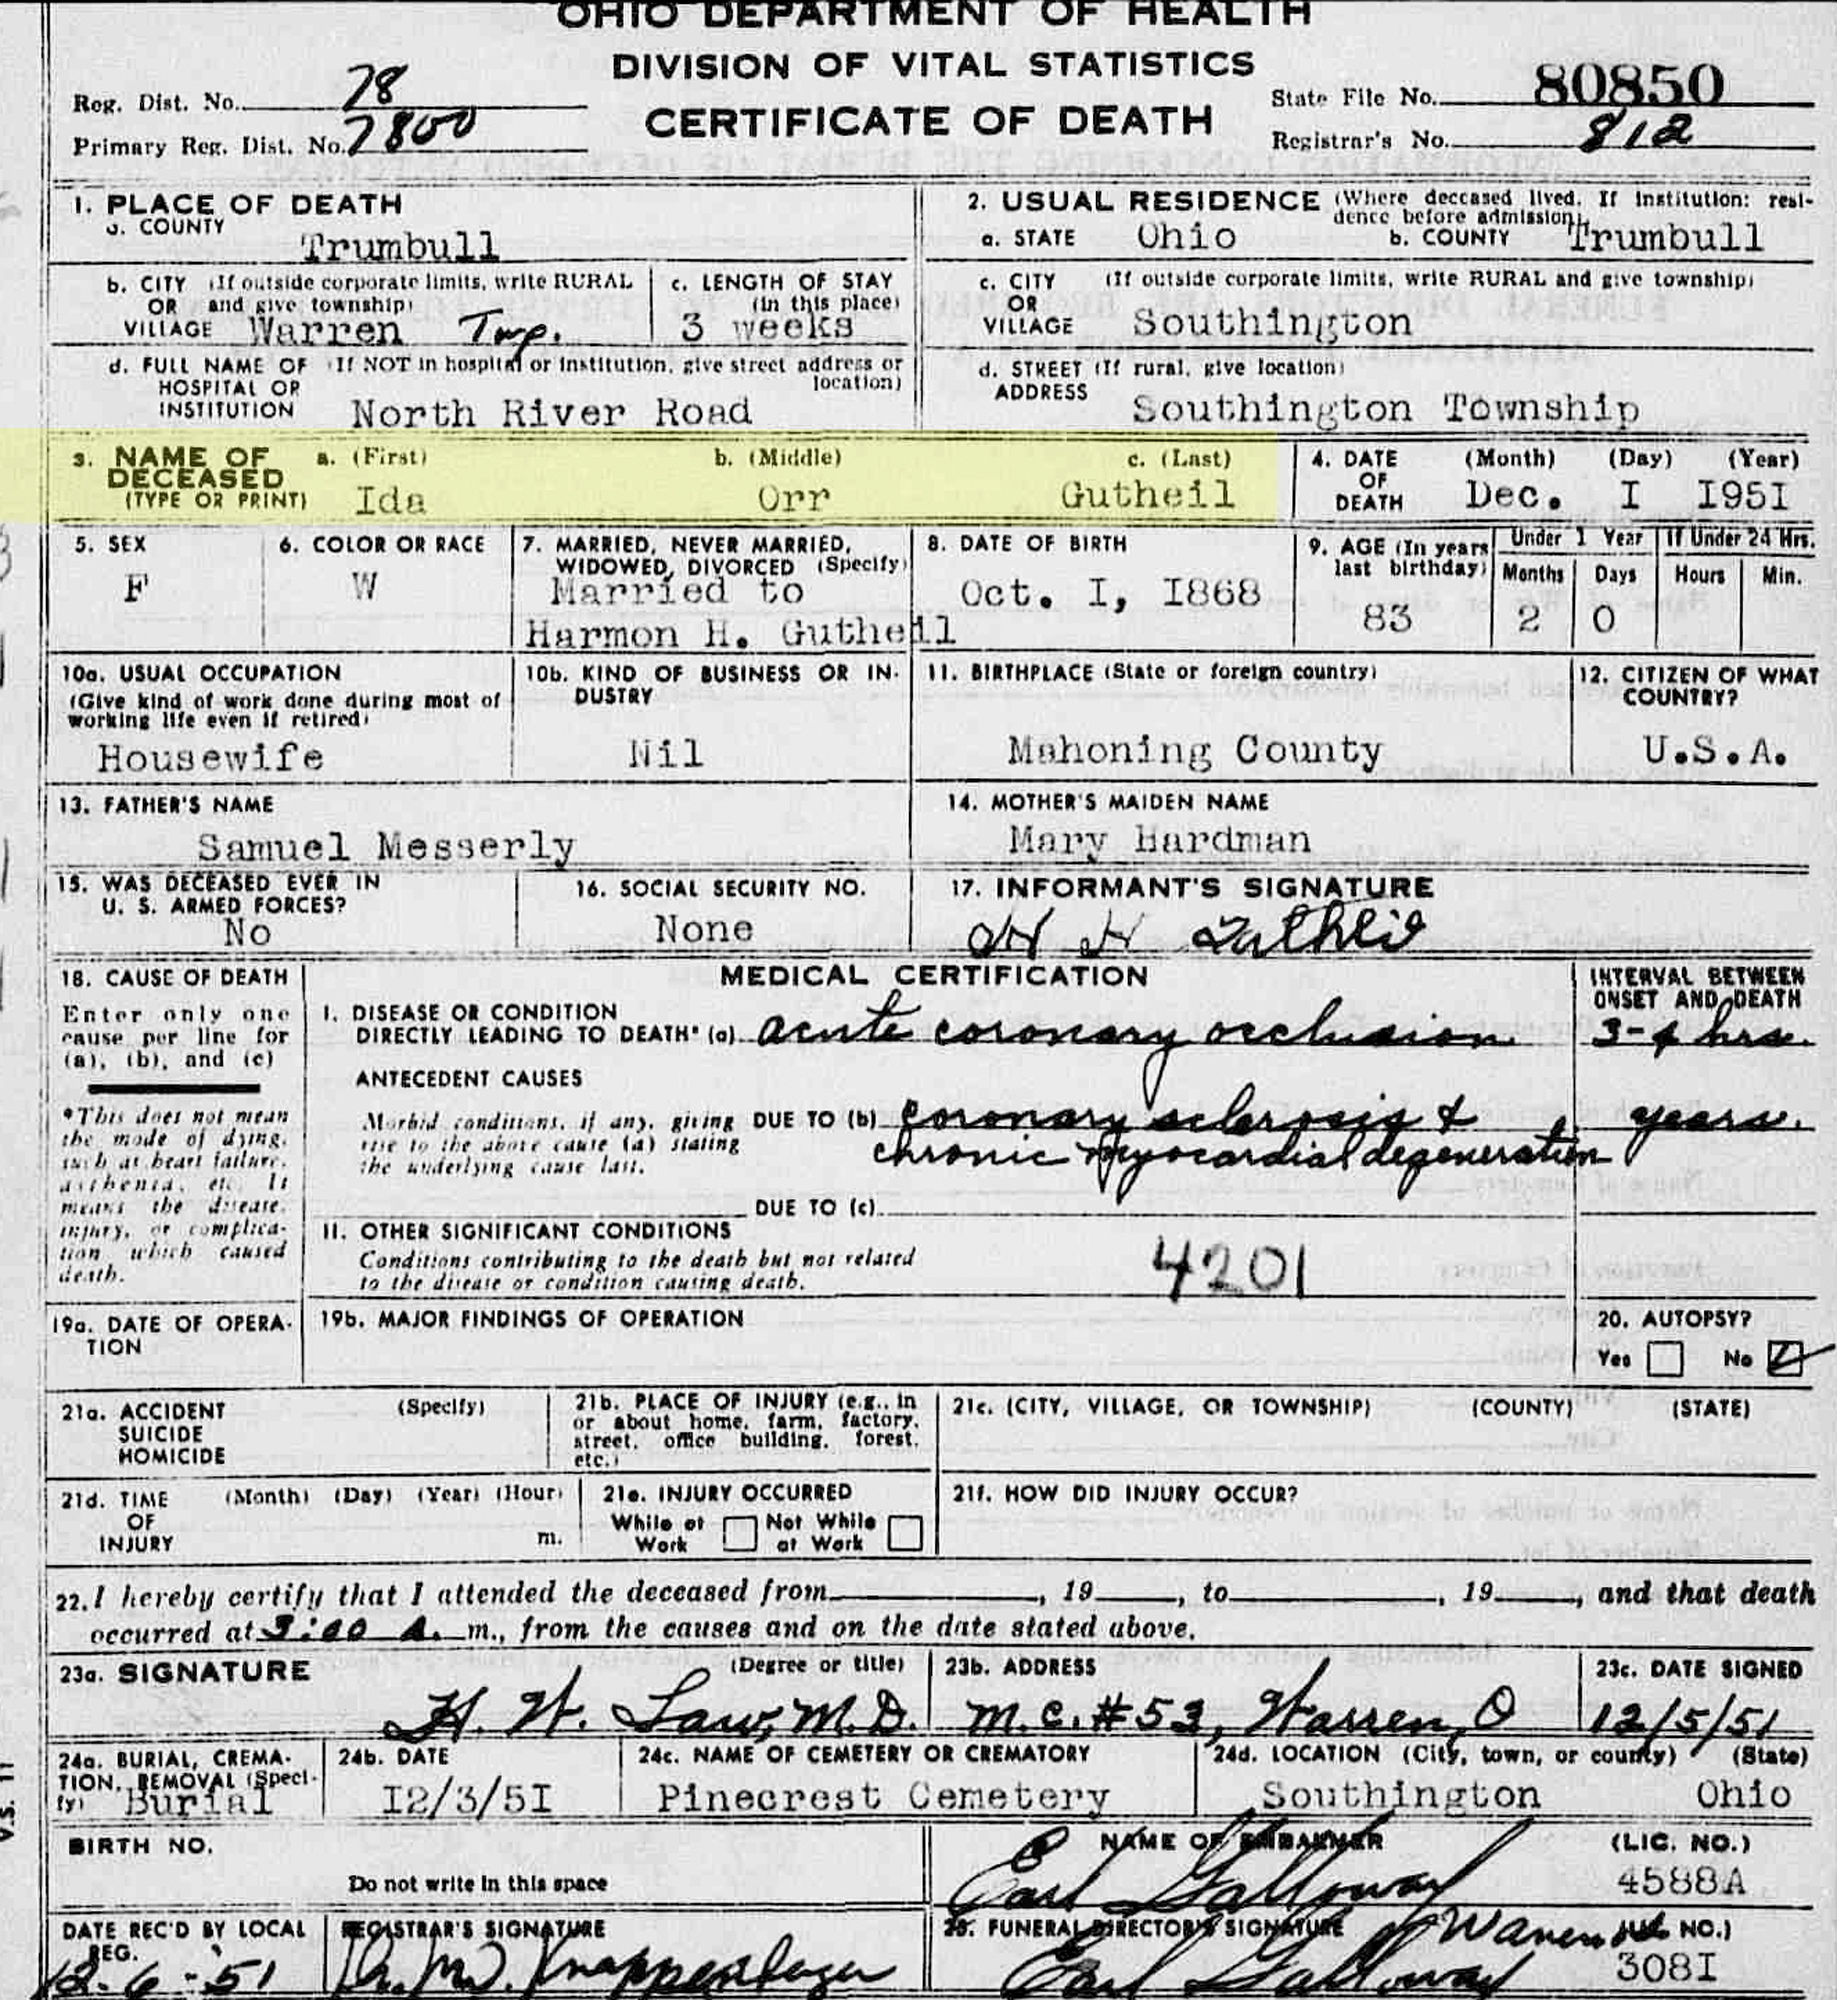 OHIO DEPARTMENT OF HEALTH
DIVISION OF VITAL STATISTICS
CERTIFICATE OF DEATH
Reg. Dist. No. 78
Primary Reg. Dist. No. 7800
State File No. 80850
Registrar's No. 812
1. PLACE OF DEATH
a. COUNTY
Trumbull
2. USUAL RESIDENCE (Where deceased lived. If institution: resi-
dence before admission).
a. STATE Ohio b. COUNTY Trumbull
b. CITY (If outside corporate limits, write RURAL
OR and give township)
VILLAGE Warren Twp.
c. LENGTH OF STAY
(in this place)
3 weeks
c. CITY (If outside corporate limits, write RURAL and give township)
OR
VILLAGE Southington
d. FULL NAME OF (If NOT in hospital or institution, give street address or
HOSPITAL OR location)
INSTITUTION North River Road
d. STREET (If rural, give location)
ADDRESS
Southington Township
3. NAME OF a. (First) b. (Middle) c. (Last)
DECEASED
(TYPE OR PRINT) Ida Orr Gutheil
4. DATE (Month) (Day) (Year)
OF
DEATH Dec. I I95I
5. SEX
F
6. COLOR OR RACE
W
7. MARRIED, NEVER MARRIED,
WIDOWED, DIVORCED (Specify)
Married to
Harmon H. Gutheil
8. DATE OF BIRTH
Oct. I, I868
9. AGE (In years
last birthday)
83
Under 1 Year
Months Days
2 0
If Under 24 Hrs.
Hours Min.
10a. USUAL OCCUPATION
(Give kind of work done during most of
working life even if retired)
Housewife
10b. KIND OF BUSINESS OR IN-
DUSTRY
Nil
11. BIRTHPLACE (State or foreign country)
Mahoning County
12. CITIZEN OF WHAT
COUNTRY?
U.S.A.
13. FATHER'S NAME
Samuel Messerly
14. MOTHER'S MAIDEN NAME
Mary Hardman
15. WAS DECEASED EVER IN
U. S. ARMED FORCES?
No
16. SOCIAL SECURITY NO.
None
17. INFORMANT'S SIGNATURE
H H Gutheil
18. CAUSE OF DEATH
Enter only one
cause per line for
(a), (b), and (c)
*This does not mean
the mode of dying,
such as heart failure,
asthenia, etc. It
means the disease,
injury, or complica-
tion which caused
death.
MEDICAL CERTIFICATION
I. DISEASE OR CONDITION
DIRECTLY LEADING TO DEATH* (a) acute coronary occlusion
ANTECEDENT CAUSES
Morbid conditions, if any, giving
rise to the above cause (a) stating
the underlying cause last.
DUE TO (b) coronary sclerosis &
chronic myocardial degeneration
DUE TO (c)
INTERVAL BETWEEN
ONSET AND DEATH
3-4 hrs.
years.
II. OTHER SIGNIFICANT CONDITIONS
Conditions contributing to the death but not related
to the disease or condition causing death.
4201
19a. DATE OF OPERA-
TION
19b. MAJOR FINDINGS OF OPERATION
20. AUTOPSY?
Yes No
21a. ACCIDENT (Specify)
SUICIDE
HOMICIDE
21b. PLACE OF INJURY (e.g., in
or about home, farm, factory,
street, office building, forest,
etc.)
21c. (CITY, VILLAGE, OR TOWNSHIP) (COUNTY) (STATE)
21d. TIME (Month) (Day) (Year) (Hour)
OF
INJURY m.
21e. INJURY OCCURRED
While at Not While
Work at Work
21f. HOW DID INJURY OCCUR?
22. I hereby certify that I attended the deceased from , 19 , to , 19 , and that death
occurred at 3:00 A. m., from the causes and on the date stated above.
23a. SIGNATURE (Degree or title)
H. W. Law, M.D.
23b. ADDRESS
M.C. #53, Warren, O
23c. DATE SIGNED
12/5/51
24a. BURIAL, CREMA-
TION, REMOVAL (Speci-
fy) Burial
24b. DATE
I2/3/5I
24c. NAME OF CEMETERY OR CREMATORY
Pinecrest Cemetery
24d. LOCATION (City, town, or county) (State)
Southington Ohio
BIRTH NO.
Do not write in this space
NAME OF EMBALMER (LIC. NO.)
Earl Galloway 4588A
DATE REC'D BY LOCAL
REG.
12-6-51
REGISTRAR'S SIGNATURE
25. FUNERAL DIRECTOR'S SIGNATURE (LIC. NO.)
Earl Galloway Warren 308I
V.S. 11